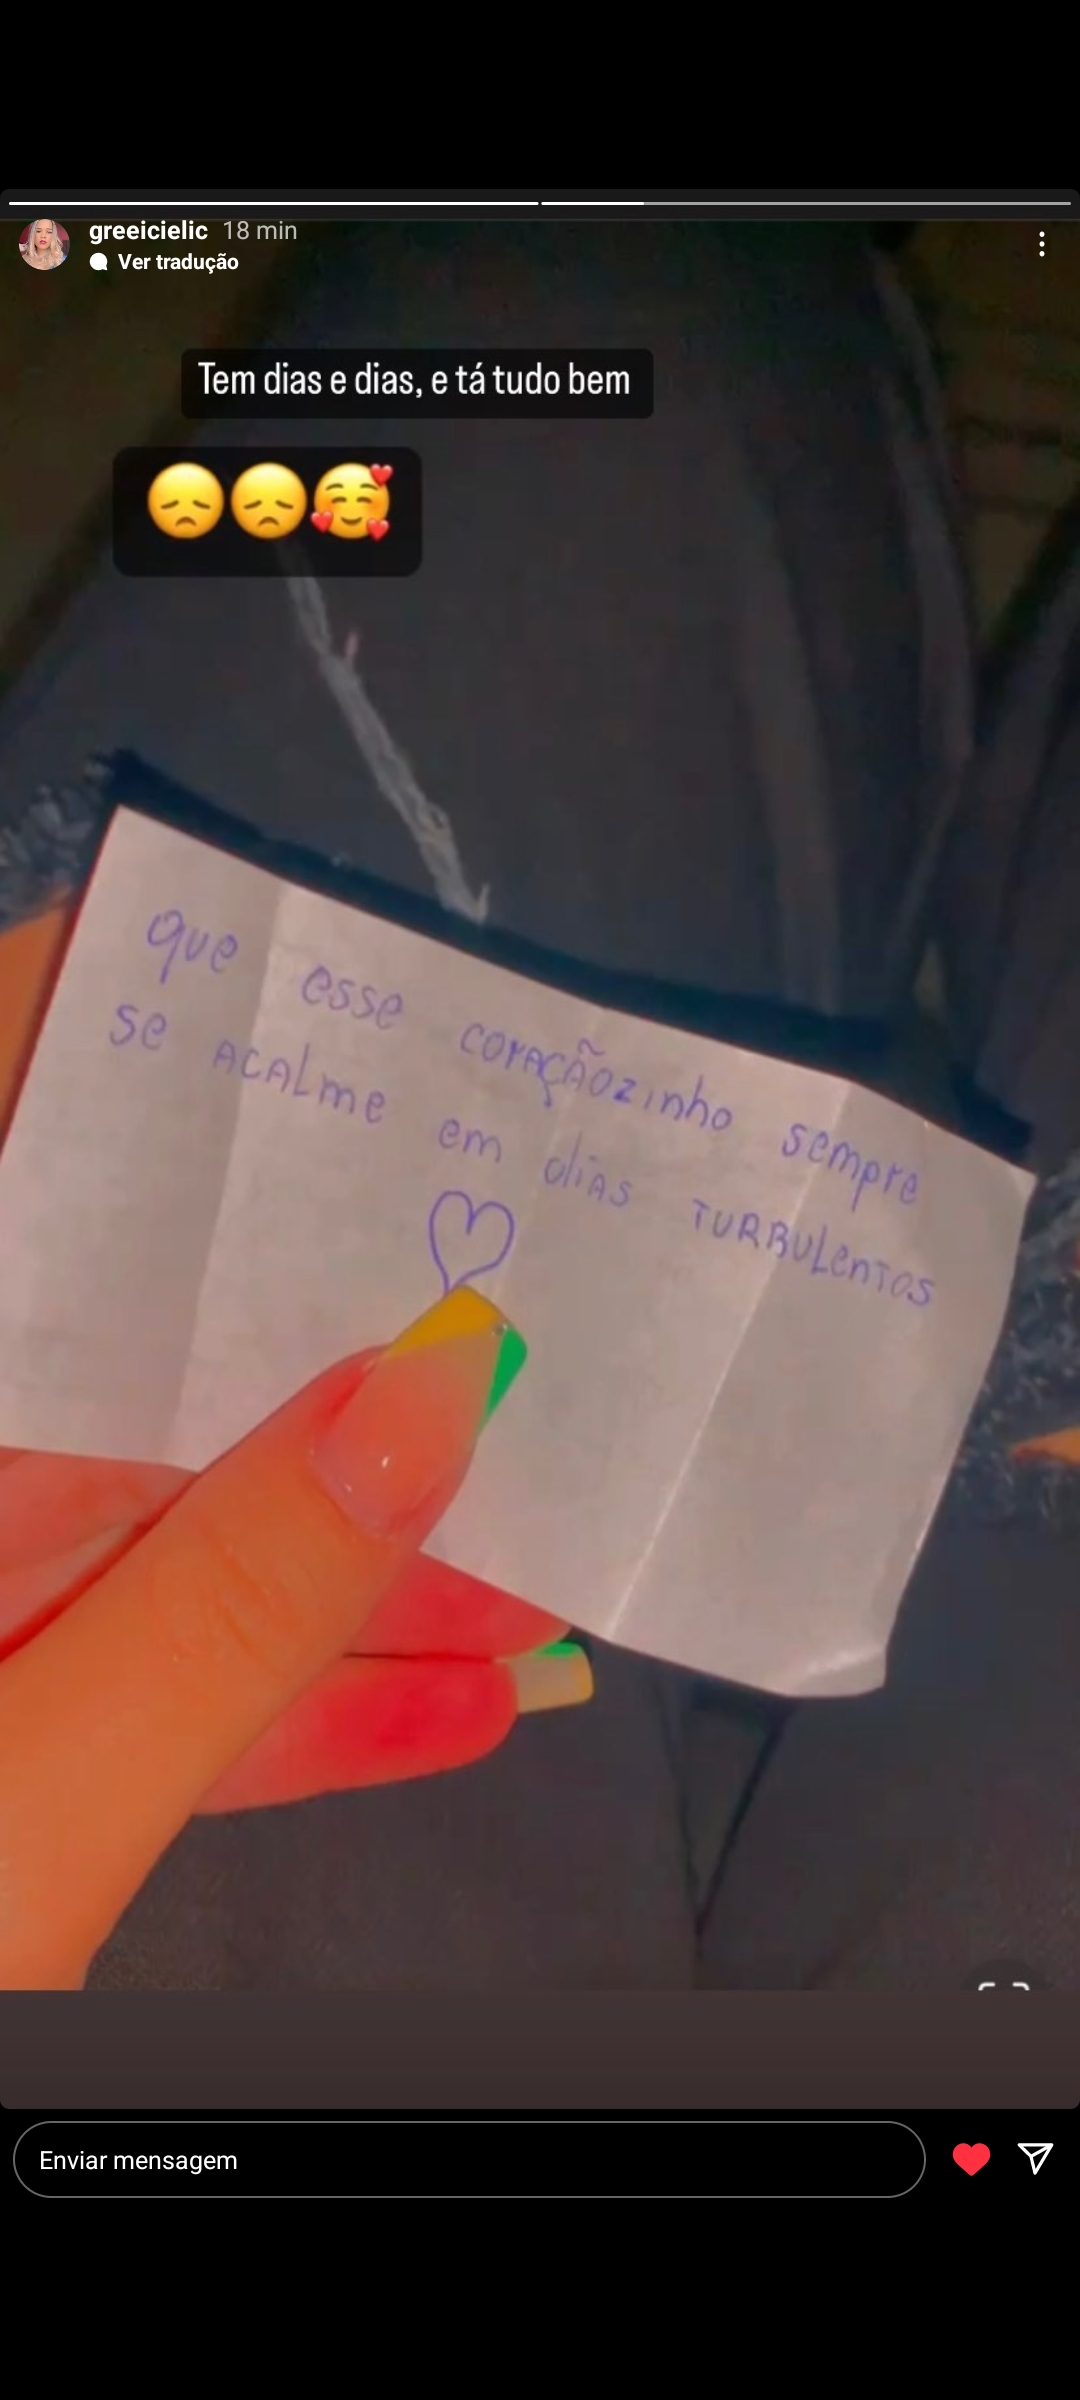 greeicielic 18 min
Ver tradução
Tem dias e dias, e tá tudo bem
😞😞🥰
que esse coraçãozinho sempre
se acalme em dias turbulentos
Enviar mensagem